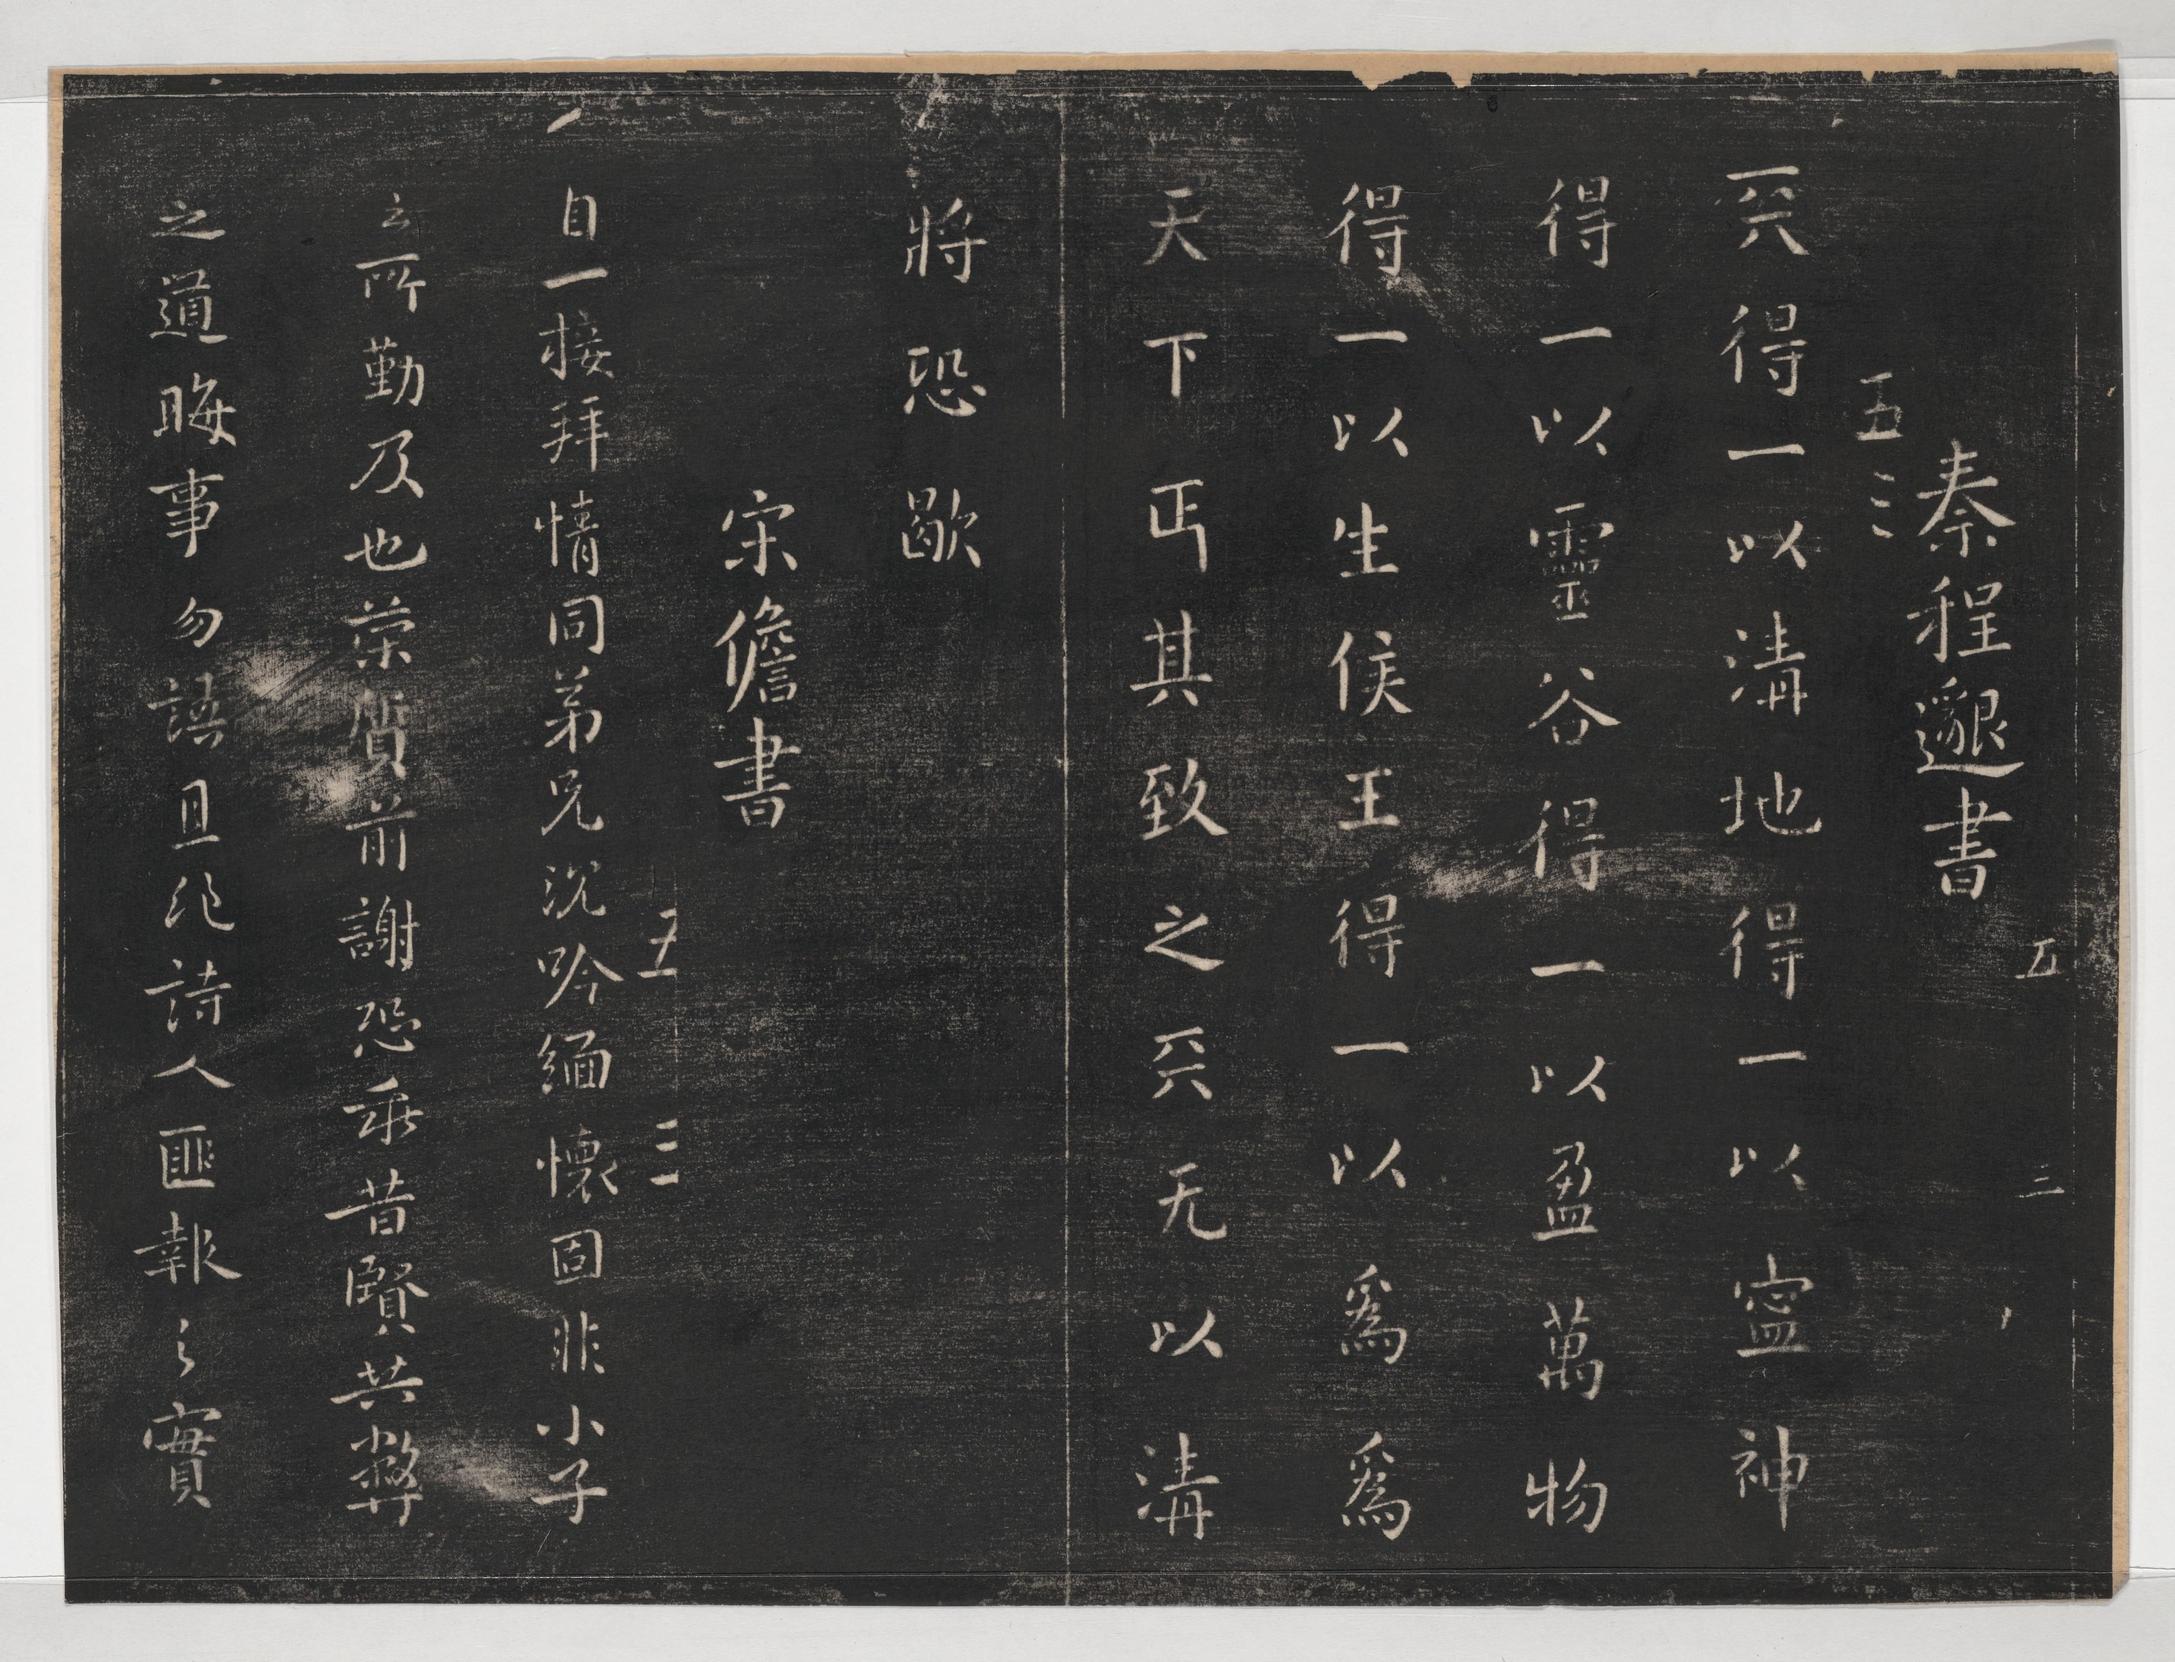 五 三
秦程邈書
五三
兲得一以清地得一以寍神
得一以靈谷得一以盈萬物
得一以生侯王得一以爲爲
天下正其致之兲无以清
將恐歇
宋儋書
五 三
自一接拜情同弟兄沉吟緬懷固非小子
之所勤及也荣質前謝恐乖昔賢共弊
之道晦事勿語且詩人匪報之實